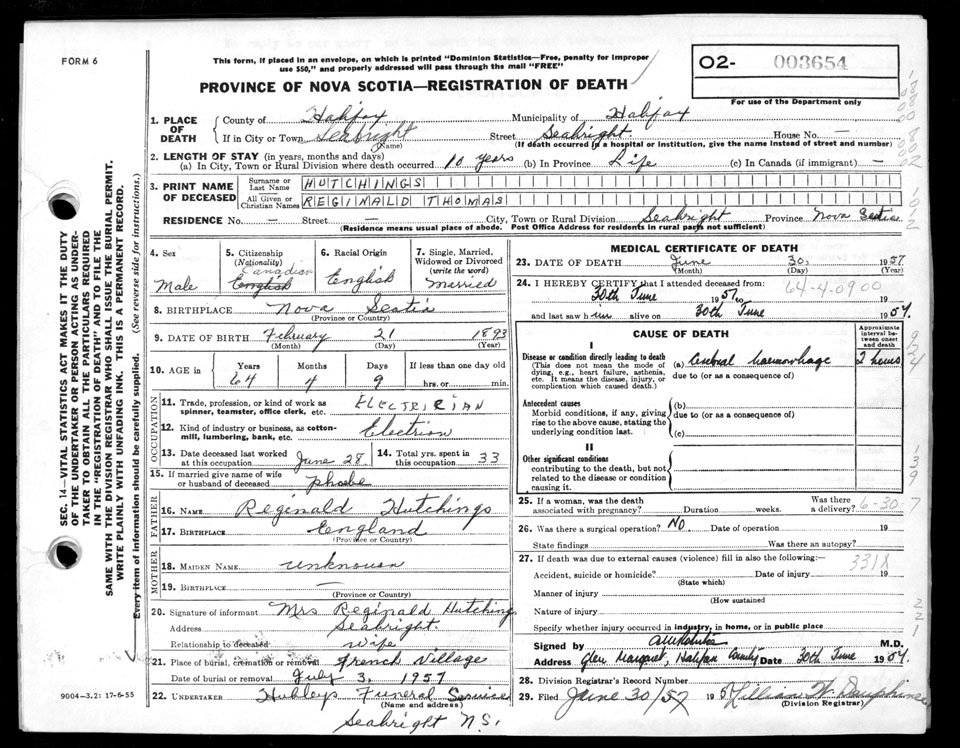 FORM 6
This form, if placed in an envelope, on which is printed "Dominion Statistics—Free, penalty for improper
use $50," and properly addressed will pass through the mail "FREE"
PROVINCE OF NOVA SCOTIA—REGISTRATION OF DEATH
O2- 003654
For use of the Department only
1. PLACE OF DEATH
County of Halifax Municipality of Halifax
If in City or Town Seabright Street Seabright House No. —
(Name) (If death occurred in a hospital or institution, give the name instead of street and number)
2. LENGTH OF STAY (in years, months and days)
(a) In City, Town or Rural Division where death occurred 10 years (b) In Province Life (c) In Canada (if immigrant) —
3. PRINT NAME OF DECEASED
Surname or Last Name HUTCHINGS
All Given or Christian Names REGINALD THOMAS
RESIDENCE No. — Street — City, Town or Rural Division Seabright Province Nova Scotia
(Residence means usual place of abode. Post Office Address for residents in rural parts not sufficient)
4. Sex
Male
5. Citizenship (Nationality)
Canadian
English
6. Racial Origin
English
7. Single, Married, Widowed or Divorced (write the word)
Married
8. BIRTHPLACE Nova Scotia
(Province or Country)
9. DATE OF BIRTH February 21 1893
(Month) (Day) (Year)
10. AGE in Years Months Days If less than one day old
64 4 9 hrs. or min.
OCCUPATION
11. Trade, profession, or kind of work as spinner, teamster, office clerk, etc. ELECTRICIAN
12. Kind of industry or business, as cotton-mill, lumbering, bank, etc. Electrion
13. Date deceased last worked at this occupation June 28
14. Total yrs. spent in this occupation 33
15. If married give name of wife or husband of deceased Phoebe
FATHER
16. NAME Reginald Hutchings
17. BIRTHPLACE England
(Province or Country)
MOTHER
18. MAIDEN NAME unknown
19. BIRTHPLACE —
(Province or Country)
20. Signature of informant Mrs Reginald Hutchings
Address Seabright.
Relationship to deceased wife
21. Place of burial, cremation or removal French Village
Date of burial or removal July 3, 1957
22. UNDERTAKER Hubleys Funeral Services
(Name and address)
Seabright N.S.
MEDICAL CERTIFICATE OF DEATH
23. DATE OF DEATH June 30, 1957
(Month) (Day) (Year)
24. I HEREBY CERTIFY that I attended deceased from:
64-4-0900
30th June 1957 to
30th June 1957.
and last saw him alive on
CAUSE OF DEATH
Approximate interval between onset and death
I
Disease or condition directly leading to death
(This does not mean the mode of dying, e.g., heart failure, asthenia, etc. It means the disease, injury, or complication which caused death.)
(a) Cerebral haemorrhage 2 hours
due to (or as a consequence of)
Antecedent causes
Morbid conditions, if any, giving rise to the above cause, stating the underlying condition last.
(b)
due to (or as a consequence of)
(c)
II
Other significant conditions
contributing to the death, but not related to the disease or condition causing it.
25. If a woman, was the death associated with pregnancy? Duration weeks. Was there a delivery?
6-30-7
26. Was there a surgical operation? No. Date of operation 19
State findings Was there an autopsy?
27. If death was due to external causes (violence) fill in also the following:
331X
Accident, suicide or homicide? Date of injury 19
(State which)
Manner of injury
(How sustained)
Nature of injury
Specify whether injury occurred in industry, in home, or in public place
Signed by M.D.
Address Glen Margaret, Halifax County Date 30th June 1957.
28. Division Registrar's Record Number
29. Filed June 30/57 195 Lillian W. Dauphinee
(Division Registrar)
SEC. 14—VITAL STATISTICS ACT MAKES IT THE DUTY
OF THE UNDERTAKER OR PERSON ACTING AS UNDER-
TAKER TO OBTAIN ALL THE PARTICULARS REQUIRED
IN THE "REGISTRATION OF DEATH" AND TO FILE THE
SAME WITH THE DIVISION REGISTRAR WHO SHALL ISSUE THE BURIAL PERMIT.
WRITE PLAINLY WITH UNFADING INK. THIS IS A PERMANENT RECORD.
Every item of information should be carefully supplied. (See reverse side for instructions.)
9004—3.2: 17-6-55